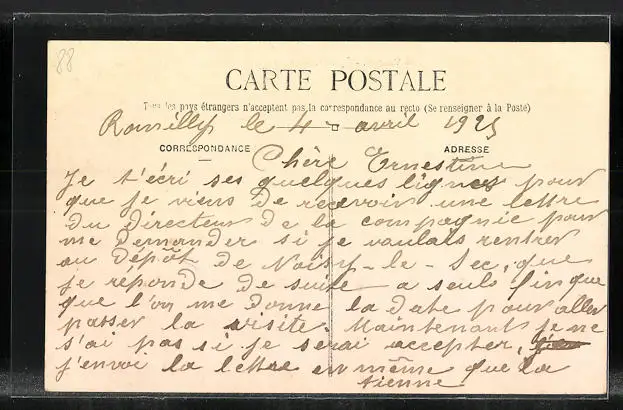 88
CARTE POSTALE
Tous les pays étrangers n'acceptent pas la correspondance au recto (Se renseigner à la Poste)
Romilly le 4 avril 1925
CORRESPONDANCE
ADRESSE
Chère Ernestine
Je t'écri ses quelques lignes pour
que je viens de recevoir une lettre
du directeur de la compagnie pour
me demander si je voulais rentrer
au Dépôt de Noisy-le-Sec, que
je réponde de suite a seule fin que
que l'on me donne la date pour aller
passer la visite. Maintenant je ne
s'ai pas si je serai accepter,
j'envoi la lettre en même que la
tienne